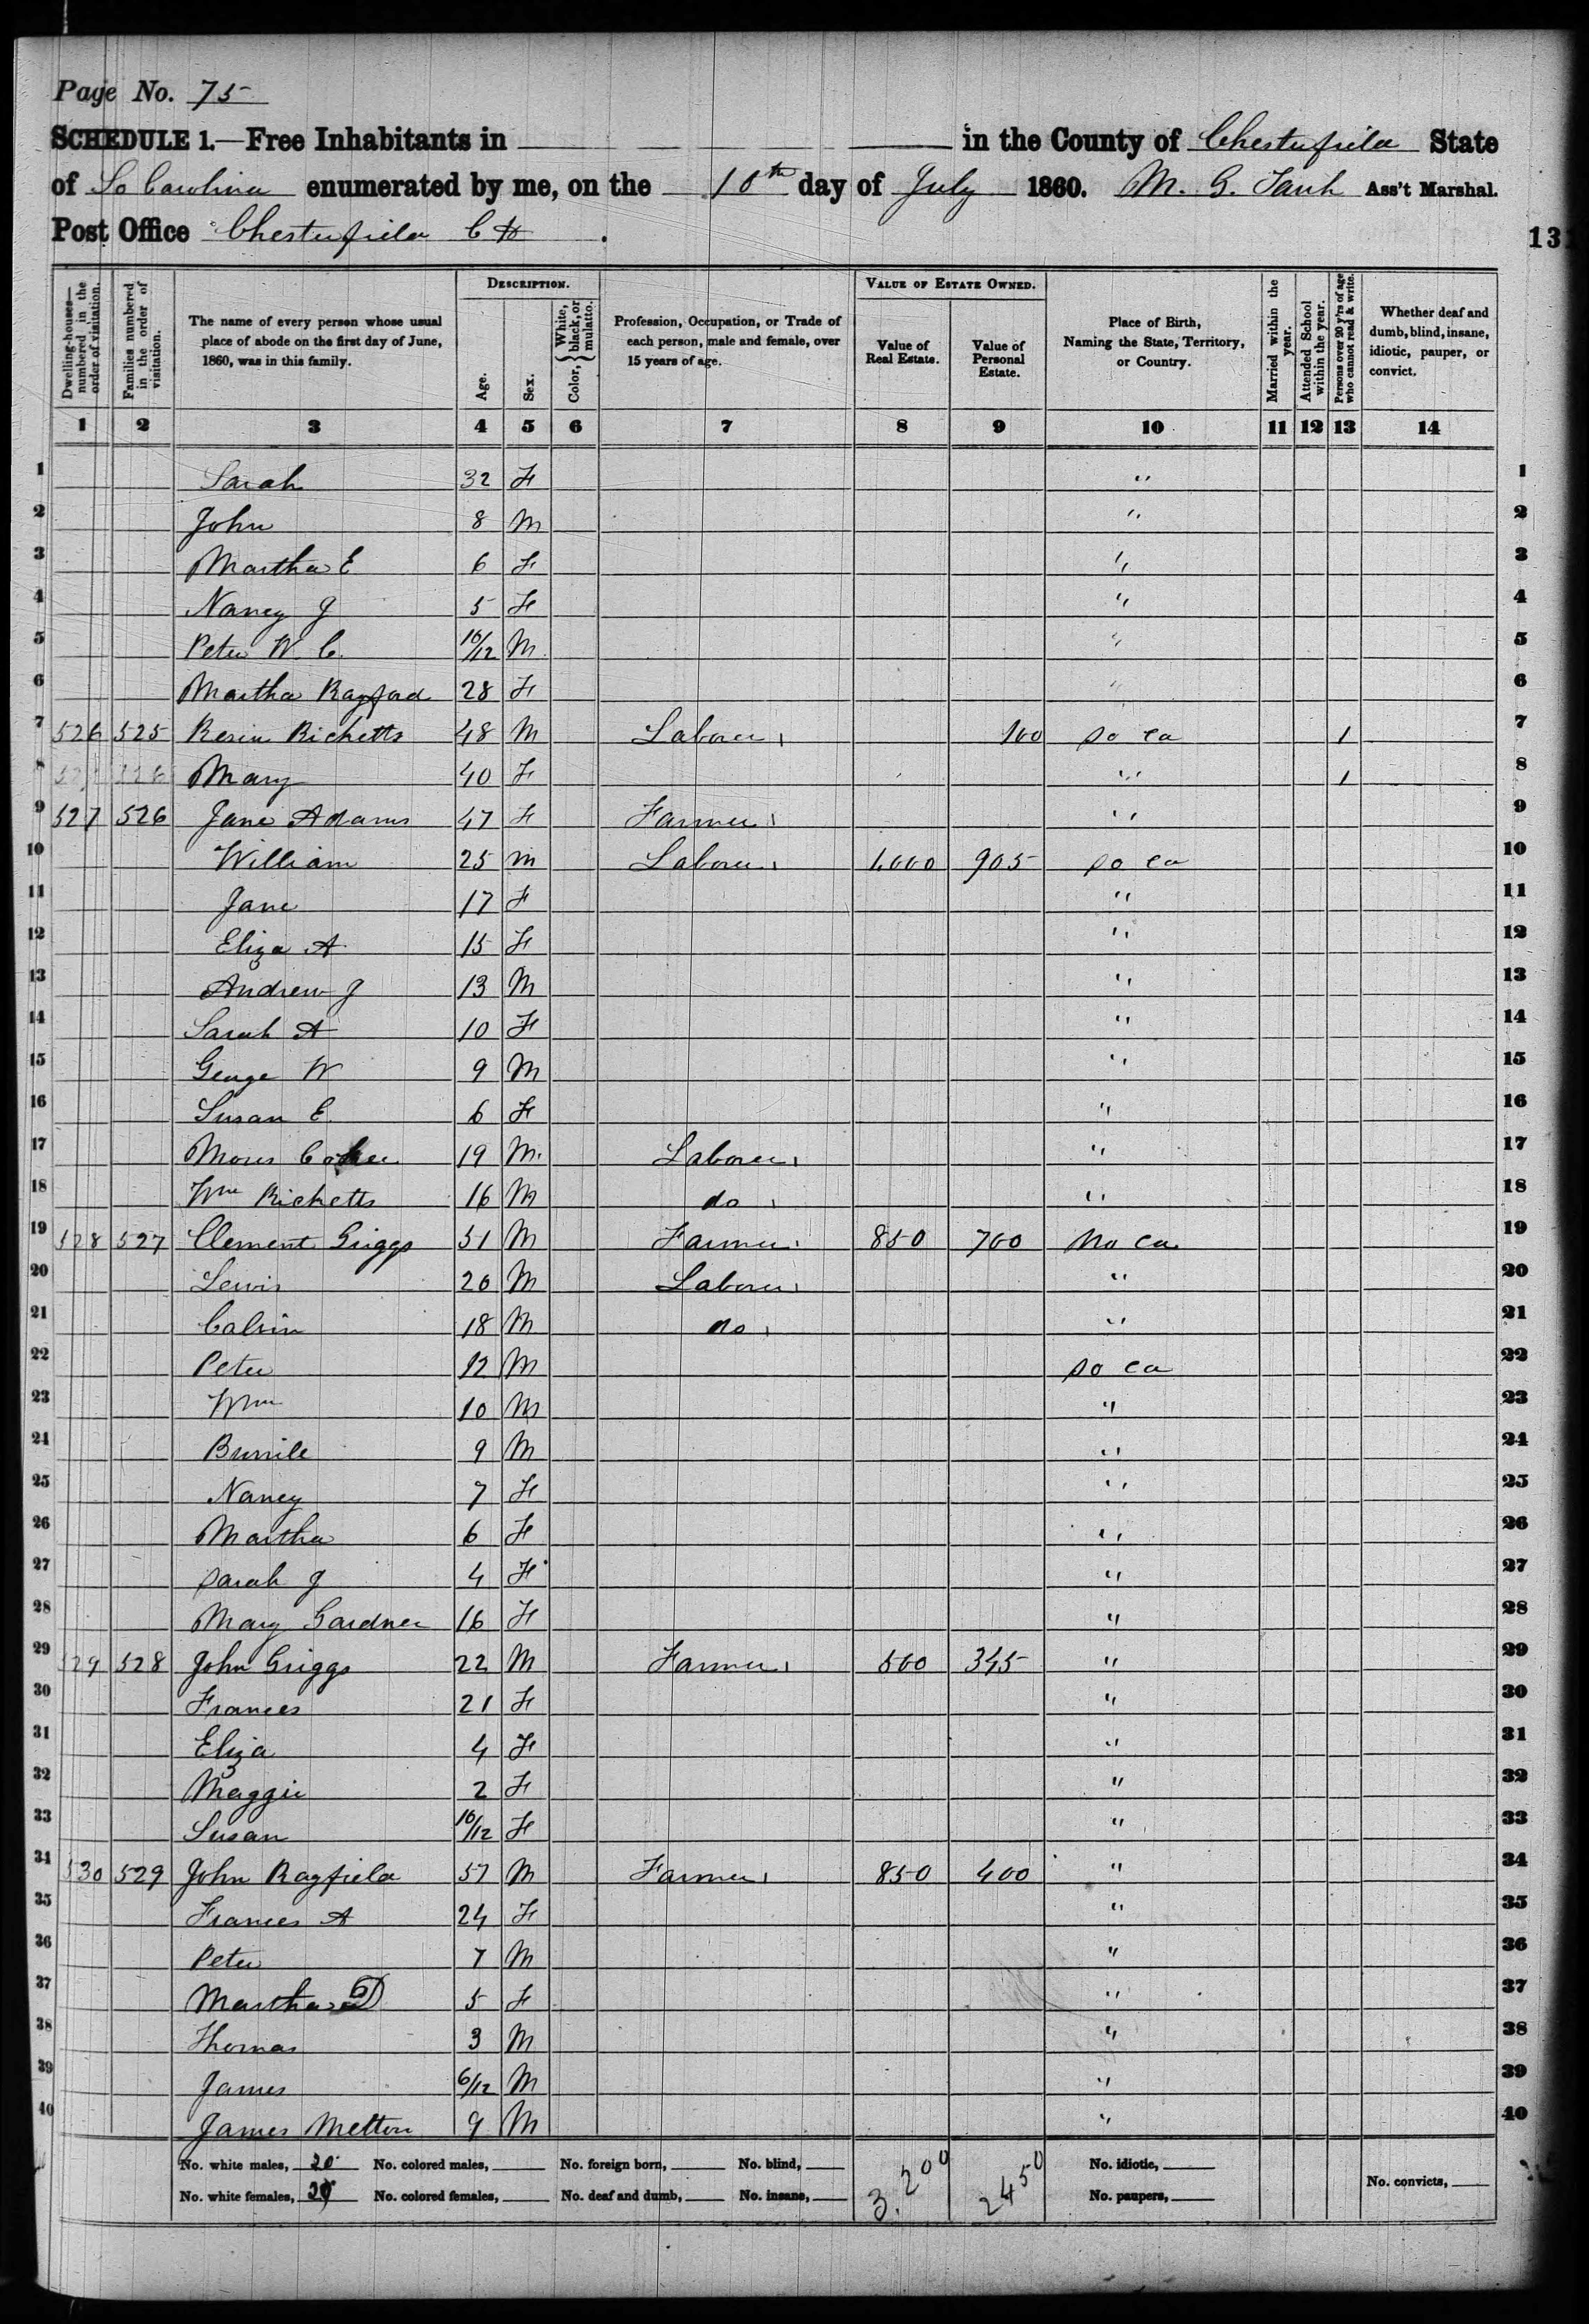 Page No. 75
SCHEDULE 1.—Free Inhabitants in in the County of Chesterfield State
of So Carolina enumerated by me, on the 10th day of July 1860. M. G. Ass't Marshal.
Post Office Chesterfield C H.
131
Dwelling-houses—numbered in the order of visitation. Families numbered in the order of visitation. The name of every person whose usual place of abode on the first day of June, 1860, was in this family. DESCRIPTION. Age. Sex. Color, { White, black, or mulatto. Profession, Occupation, or Trade of each person, male and female, over 15 years of age. VALUE OF ESTATE OWNED. Value of Real Estate. Value of Personal Estate. Place of Birth, Naming the State, Territory, or Country. Married within the year. Attended School within the year. Persons over 20 y'rs of age who cannot read & write. Whether deaf and dumb, blind, insane, idiotic, pauper, or convict.
1 2 3 4 5 6 7 8 9 10 11 12 13 14
1 Sarah 32 F " 1
2 John 8 M " 2
3 Martha E 6 F " 3
4 Nancy J 5 F " 4
5 Peter W. C. 10/12 M " 5
6 Martha Rayford 28 F " 6
7 526 525 Resin Ricketts 48 M Laborer 100 So Ca 1 7
8 Mary 40 F " 1 8
9 527 526 Jane Adams 47 F Farmer " 9
10 William 25 M Laborer 1,000 905 So Ca 10
11 Jane 17 F " 11
12 Eliza A 15 F " 12
13 Andrew J 13 M " 13
14 Sarah A 10 F " 14
15 George W 9 M " 15
16 Susan E. 6 F " 16
17 19 M. Laborer " 17
18 Wm Ricketts 16 M do " 18
19 528 527 Clement Griggs 51 M Farmer 850 700 No Ca 19
20 Lewis 20 M Laborer " 20
21 Calvin 18 M do " 21
22 Peter 12 M So Ca 22
23 Wm 10 M " 23
24 9 M " 24
25 Nancy 7 F " 25
26 Martha 6 F " 26
27 Sarah J 4 F " 27
28 Mary Gardner 16 F " 28
29 529 528 John Griggs 22 M Farmer 500 345 " 29
30 Frances 21 F " 30
31 Eliza 4 F " 31
32 Maggie 2 F " 32
33 Susan 10/12 F " 33
34 530 529 John Rayfield 57 M Farmer 850 400 " 34
35 Frances A 24 F " 35
36 Peter 7 M " 36
37 Martha 5 F " 37
38 Thomas 3 M " 38
39 James 6/12 M " 39
40 James Melton 9 M " 40
No. white males, 20 No. colored males, No. foreign born, No. blind, 3.200 2450 No. idiotic,
No. white females, 20 No. colored females, No. deaf and dumb, No. insane, No. paupers, No. convicts,